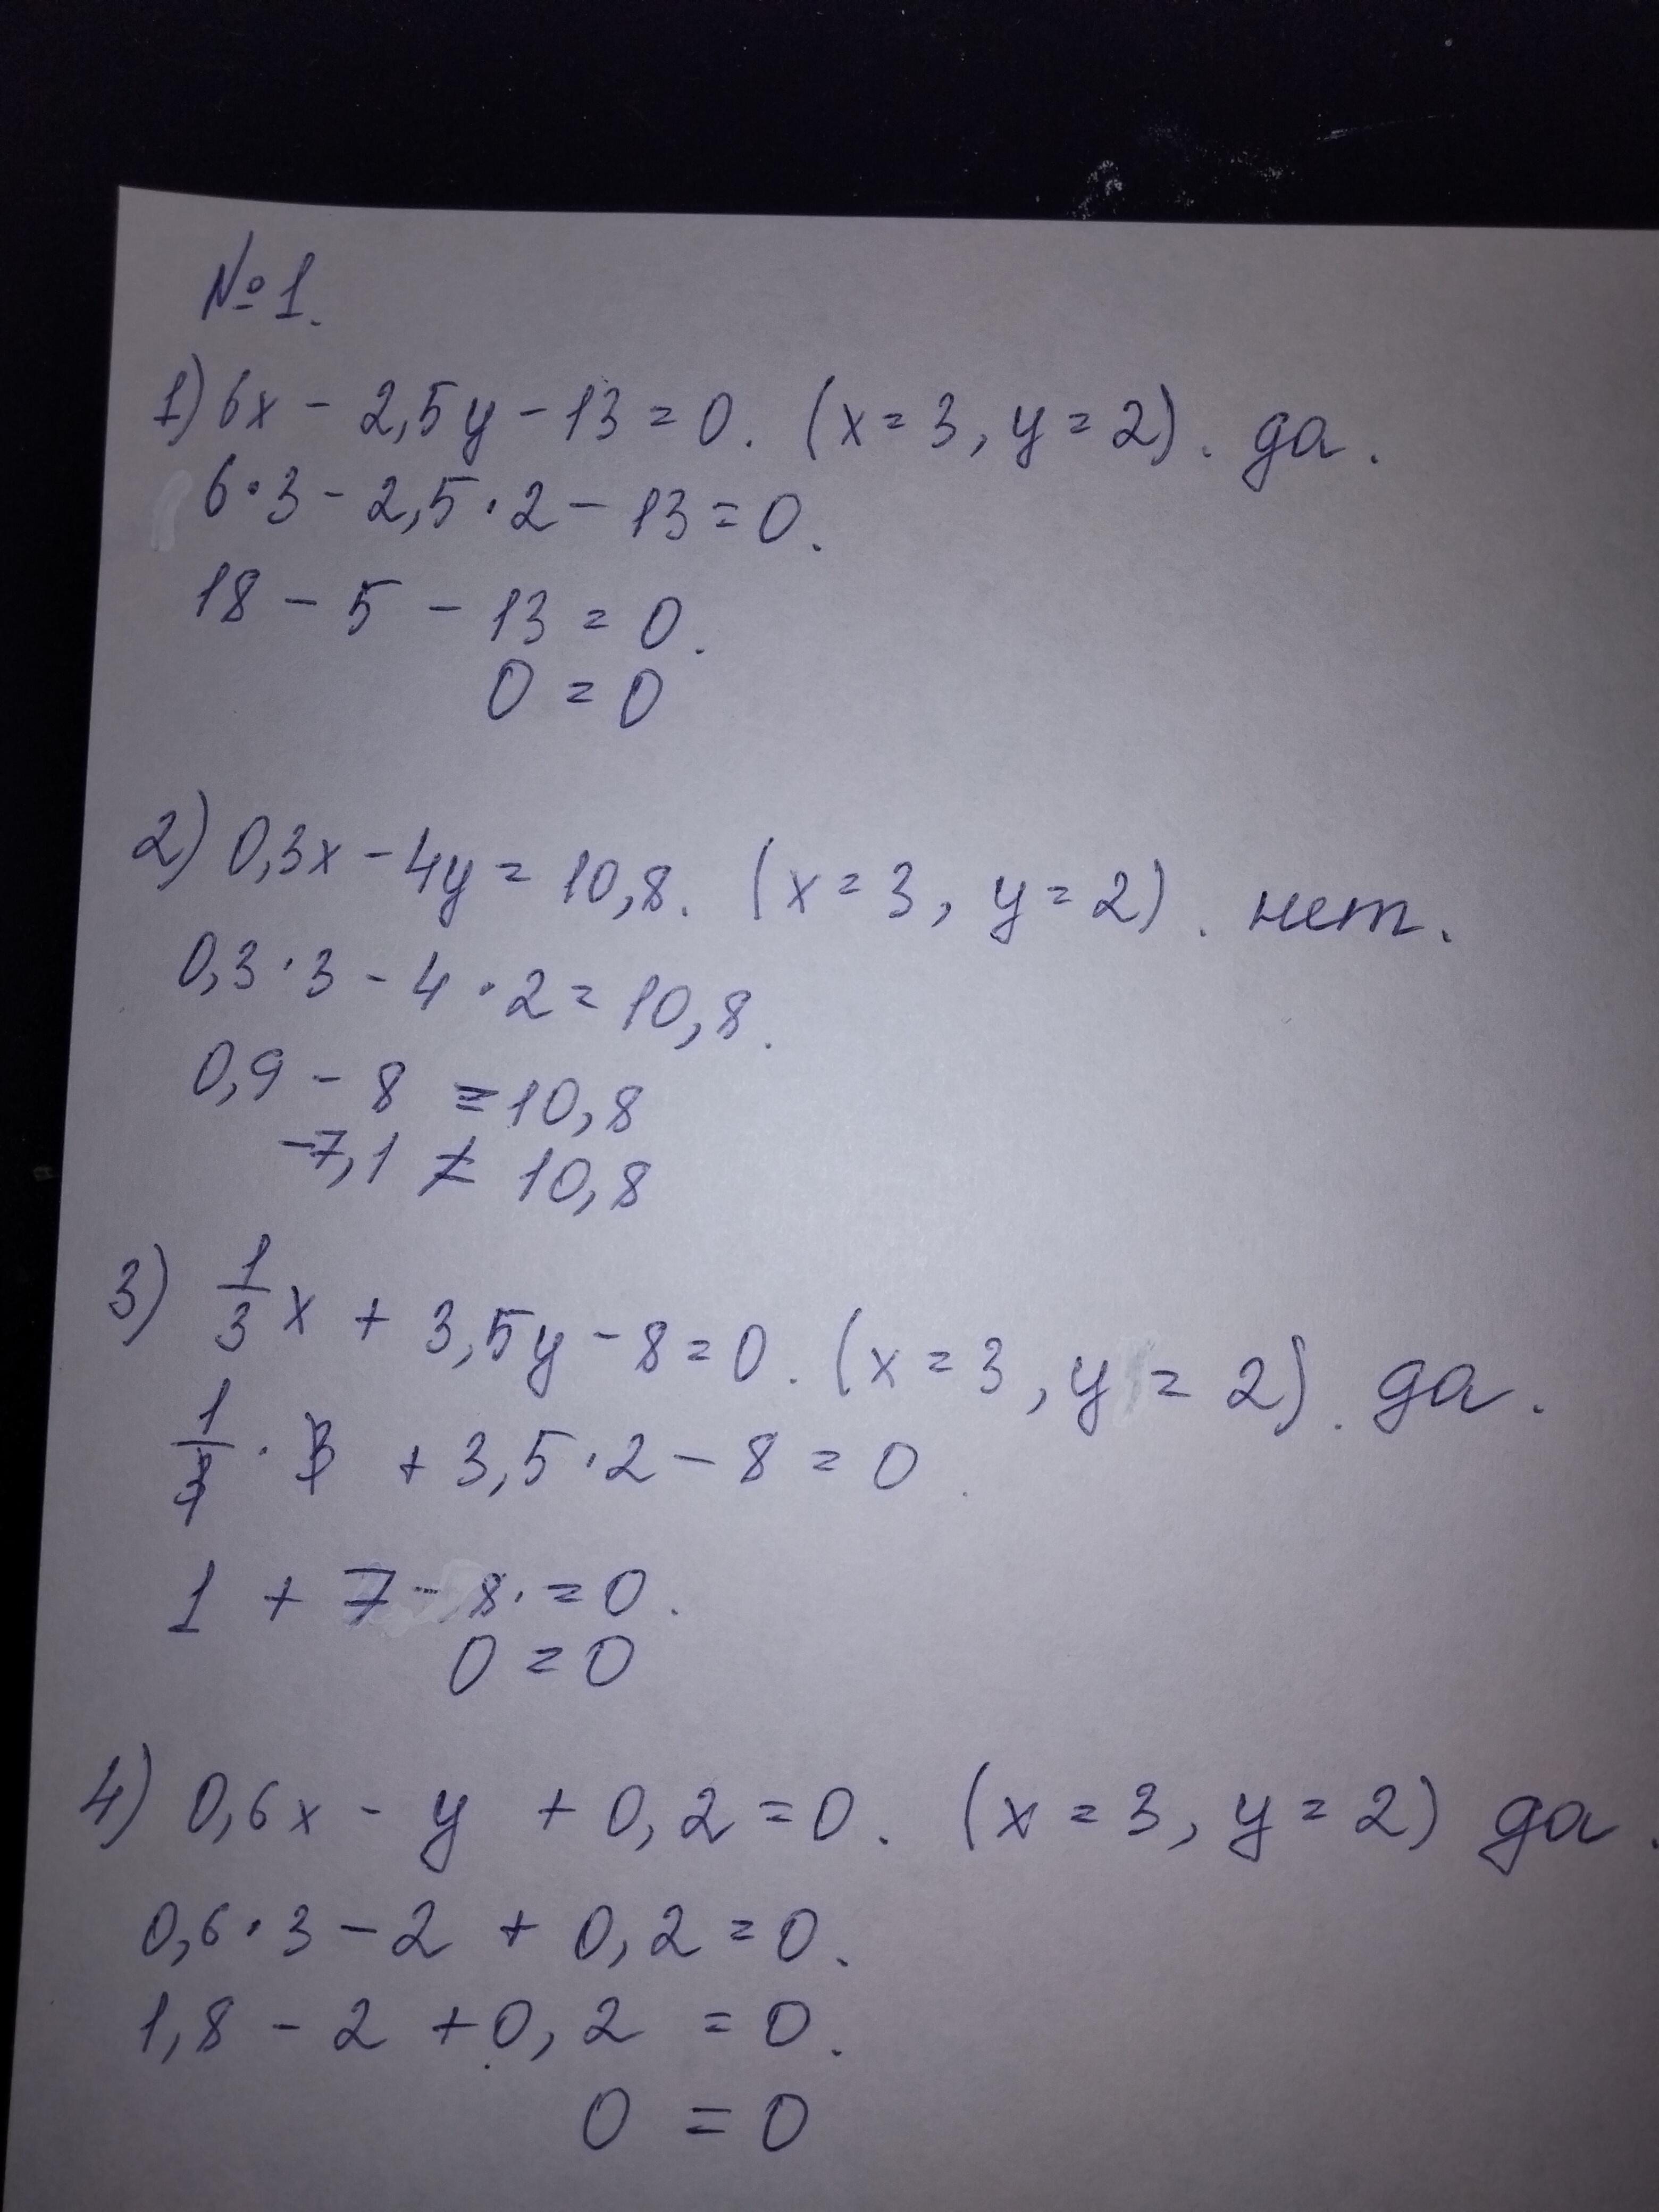 №1.
1) 6x - 2,5y - 13 = 0. (x = 3, y = 2). да.
6·3 - 2,5·2 - 13 = 0.
18 - 5 - 13 = 0.
0 = 0
2) 0,3x - 4y = 10,8. (x = 3, y = 2). нет.
0,3·3 - 4·2 = 10,8.
0,9 - 8 = 10,8
-7,1 ≠ 10,8
3) 1/3 x + 3,5y - 8 = 0. (x = 3, y = 2). да.
1/3 · 3 + 3,5·2 - 8 = 0.
1 + 7 - 8. = 0.
0 = 0
4) 0,6x - y + 0,2 = 0. (x = 3, y = 2) да.
0,6·3 - 2 + 0,2 = 0.
1,8 - 2 + 0,2 = 0.
0 = 0